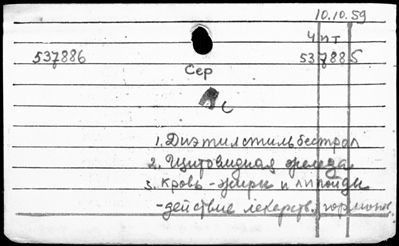 10.10.59
4 пт
537886 537885
Сер
с
1. Диэтилстильбестрол
2. Щитовидная железа
3. Кровь - жиры и липоиды
- действие лекарств. гормонов